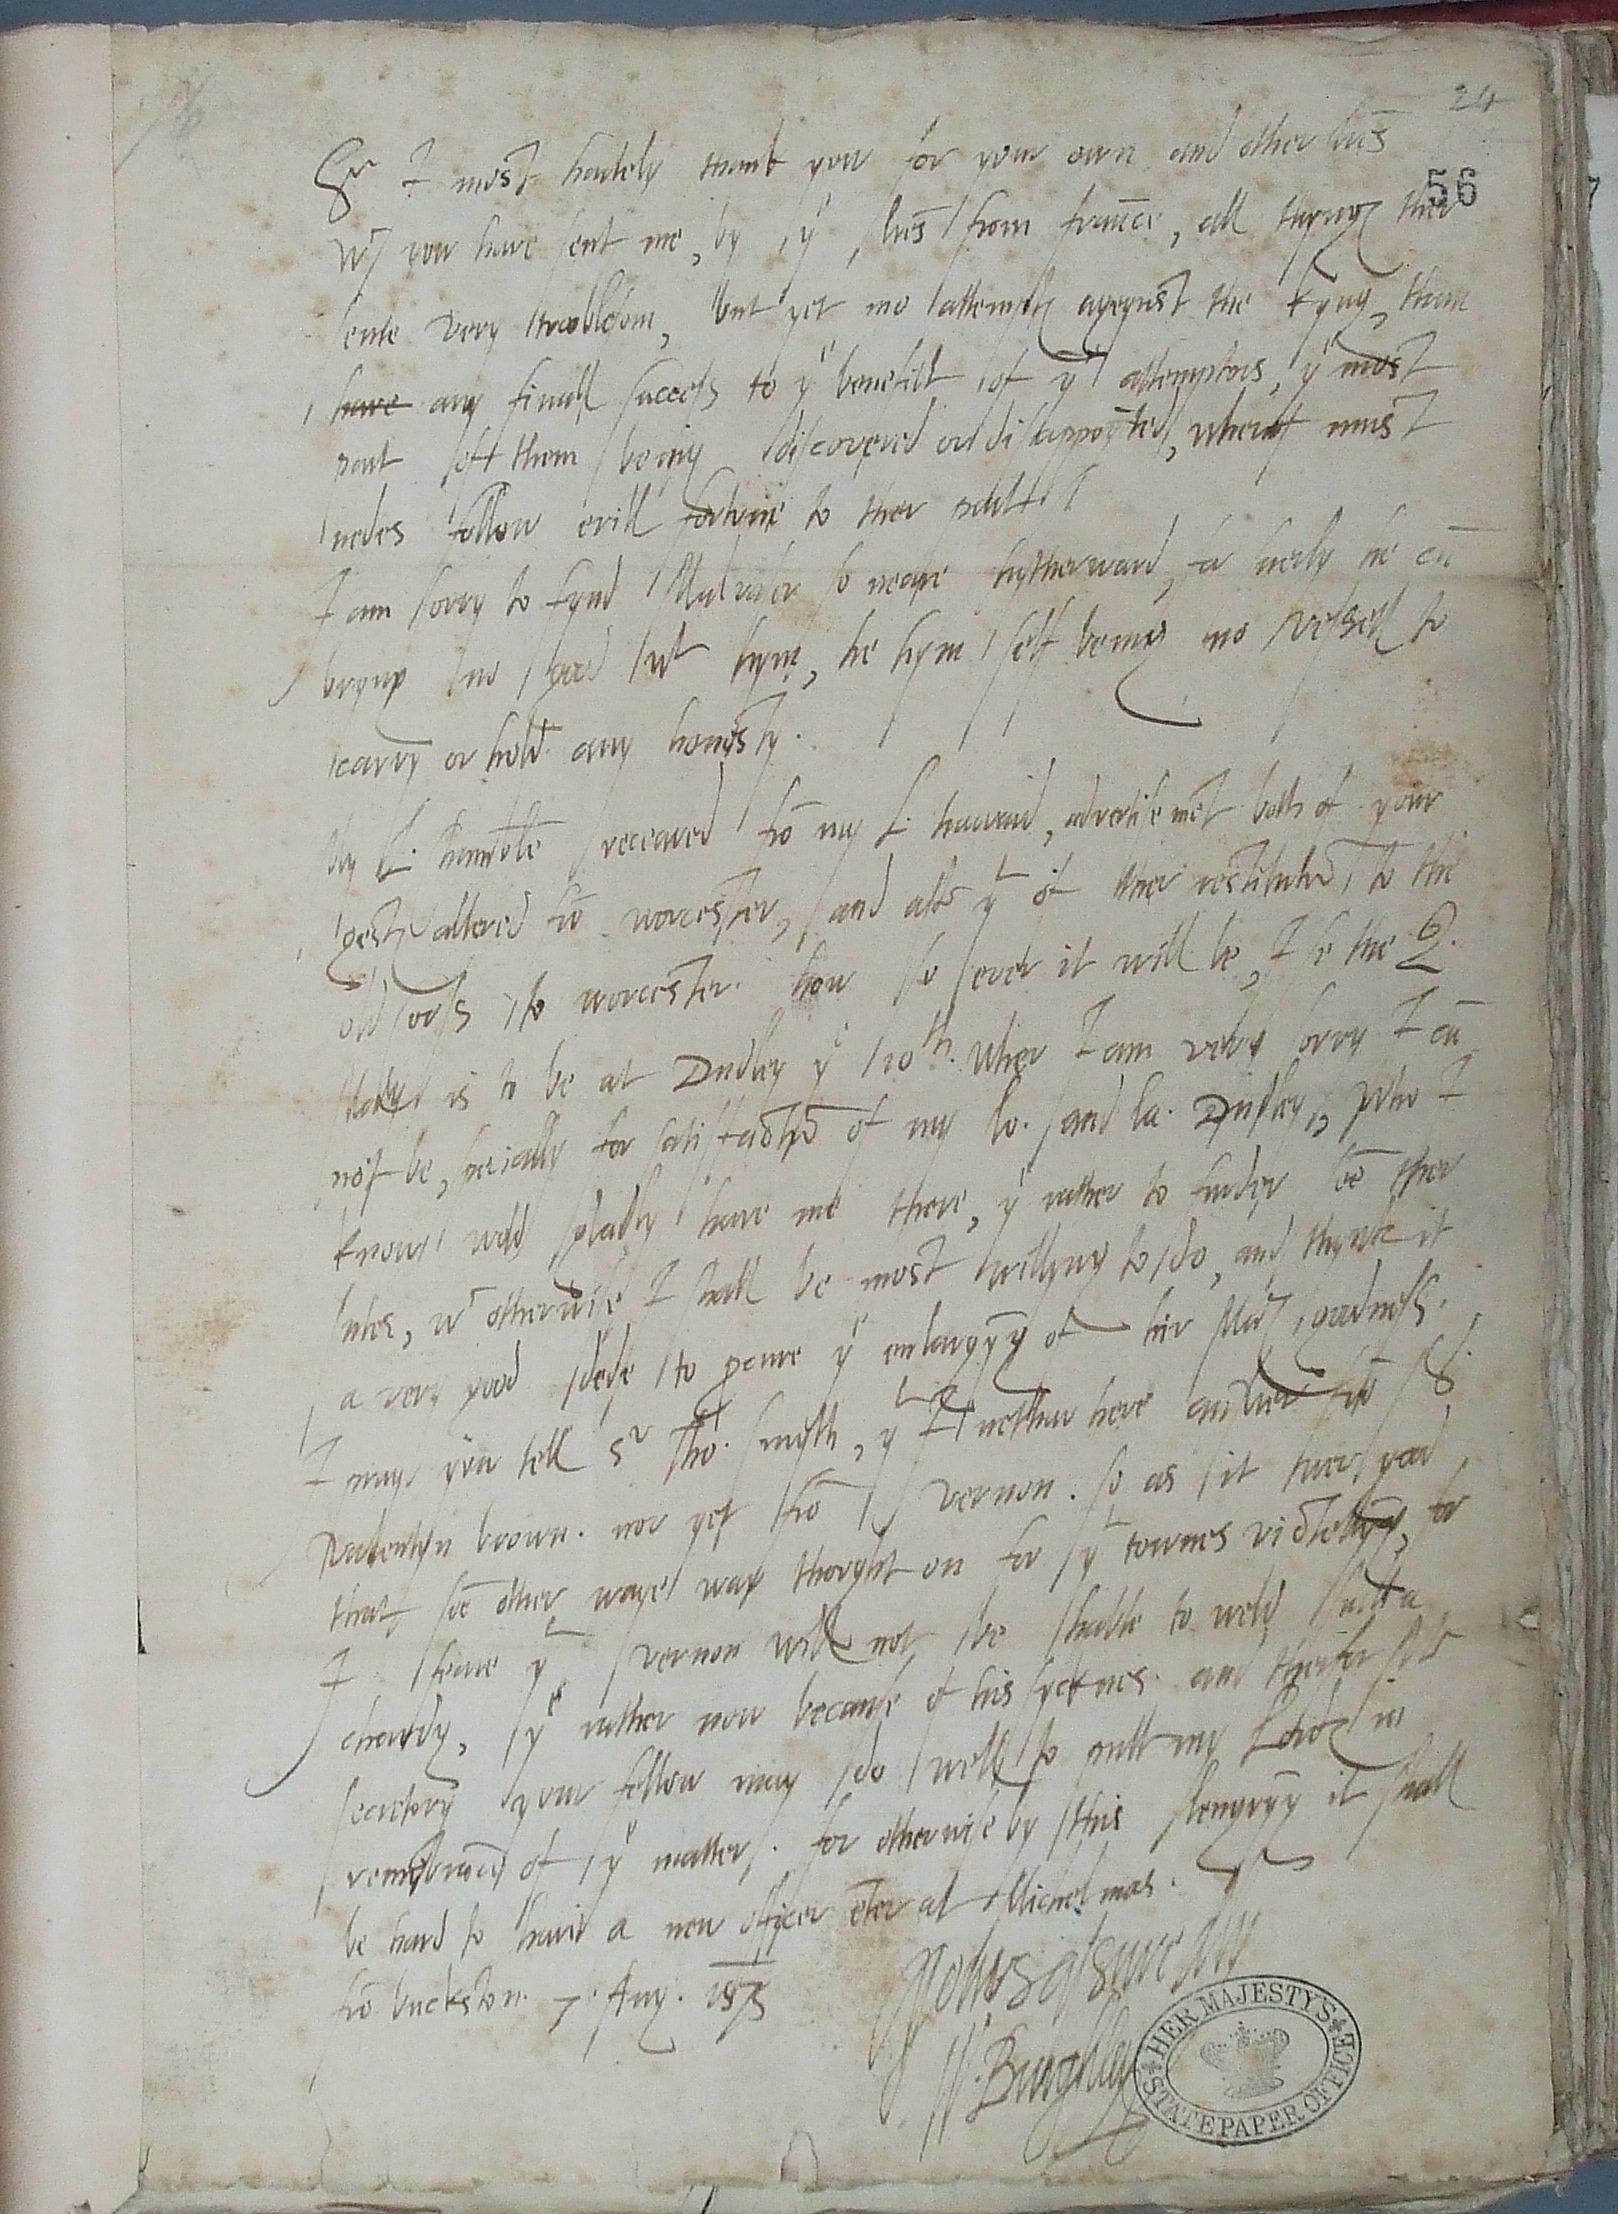 24
56
Sr I most hartely thank you for your own and other lrēs
wch you have sent me, by ye lrēs from frāce, all thyngs ther
seme very trooblesom, but yet no attempts ageynst the kyng, than
have any finall success to ye benefitt of ye attemptors, ye most
part of them being discovered or disappoyted, wherof must
nedes follow evill fortune to ther
I am sorry to fynd so neare hytherward, for suerly he cā
bryng no good wt hym, he hym self being no vessell to
carry or hold any honesty.
My L. receaved frō my L. haward, advertisemēt both of your
gests altered frō worcester, and also yt of ther restitutiō to the
old to worcester. how so ever it will be, I se the Q.
Maty is to be at Dudley ye 10th. wher I am very sorry I cā
not be, specially for satisfactiō of my lo. and la. Dudley, who I
know wold gladly have me there, ye rather to furder ther
sutes, wch otherwise I shall be most willyng to do, and thynk it
a very good dede to pcure ye enlargyg of hir Mats goodness.
I pray you tell Sr Tho. Smyth, yt I nether here answer frō Sr
Valentyn brown. nor yet frō vernon. so as it wer good
that sōe other waye war thought on for ye townes victellyg, for
I feare yt vernon will not be hable to weld such a
chardg, ye rather now because of his sycknes. and therfor Mr
secretory your fellow may do well to putt my Lords in
remēbrance of ye matter. for otherwise by this lengryg it shall
be hard to have a new officer ēter at Michelmas.
frō buckston 7. Aug. 1575
Yours assuredly
W. Burghley
HER MAJESTY'S STATE PAPER OFFICE